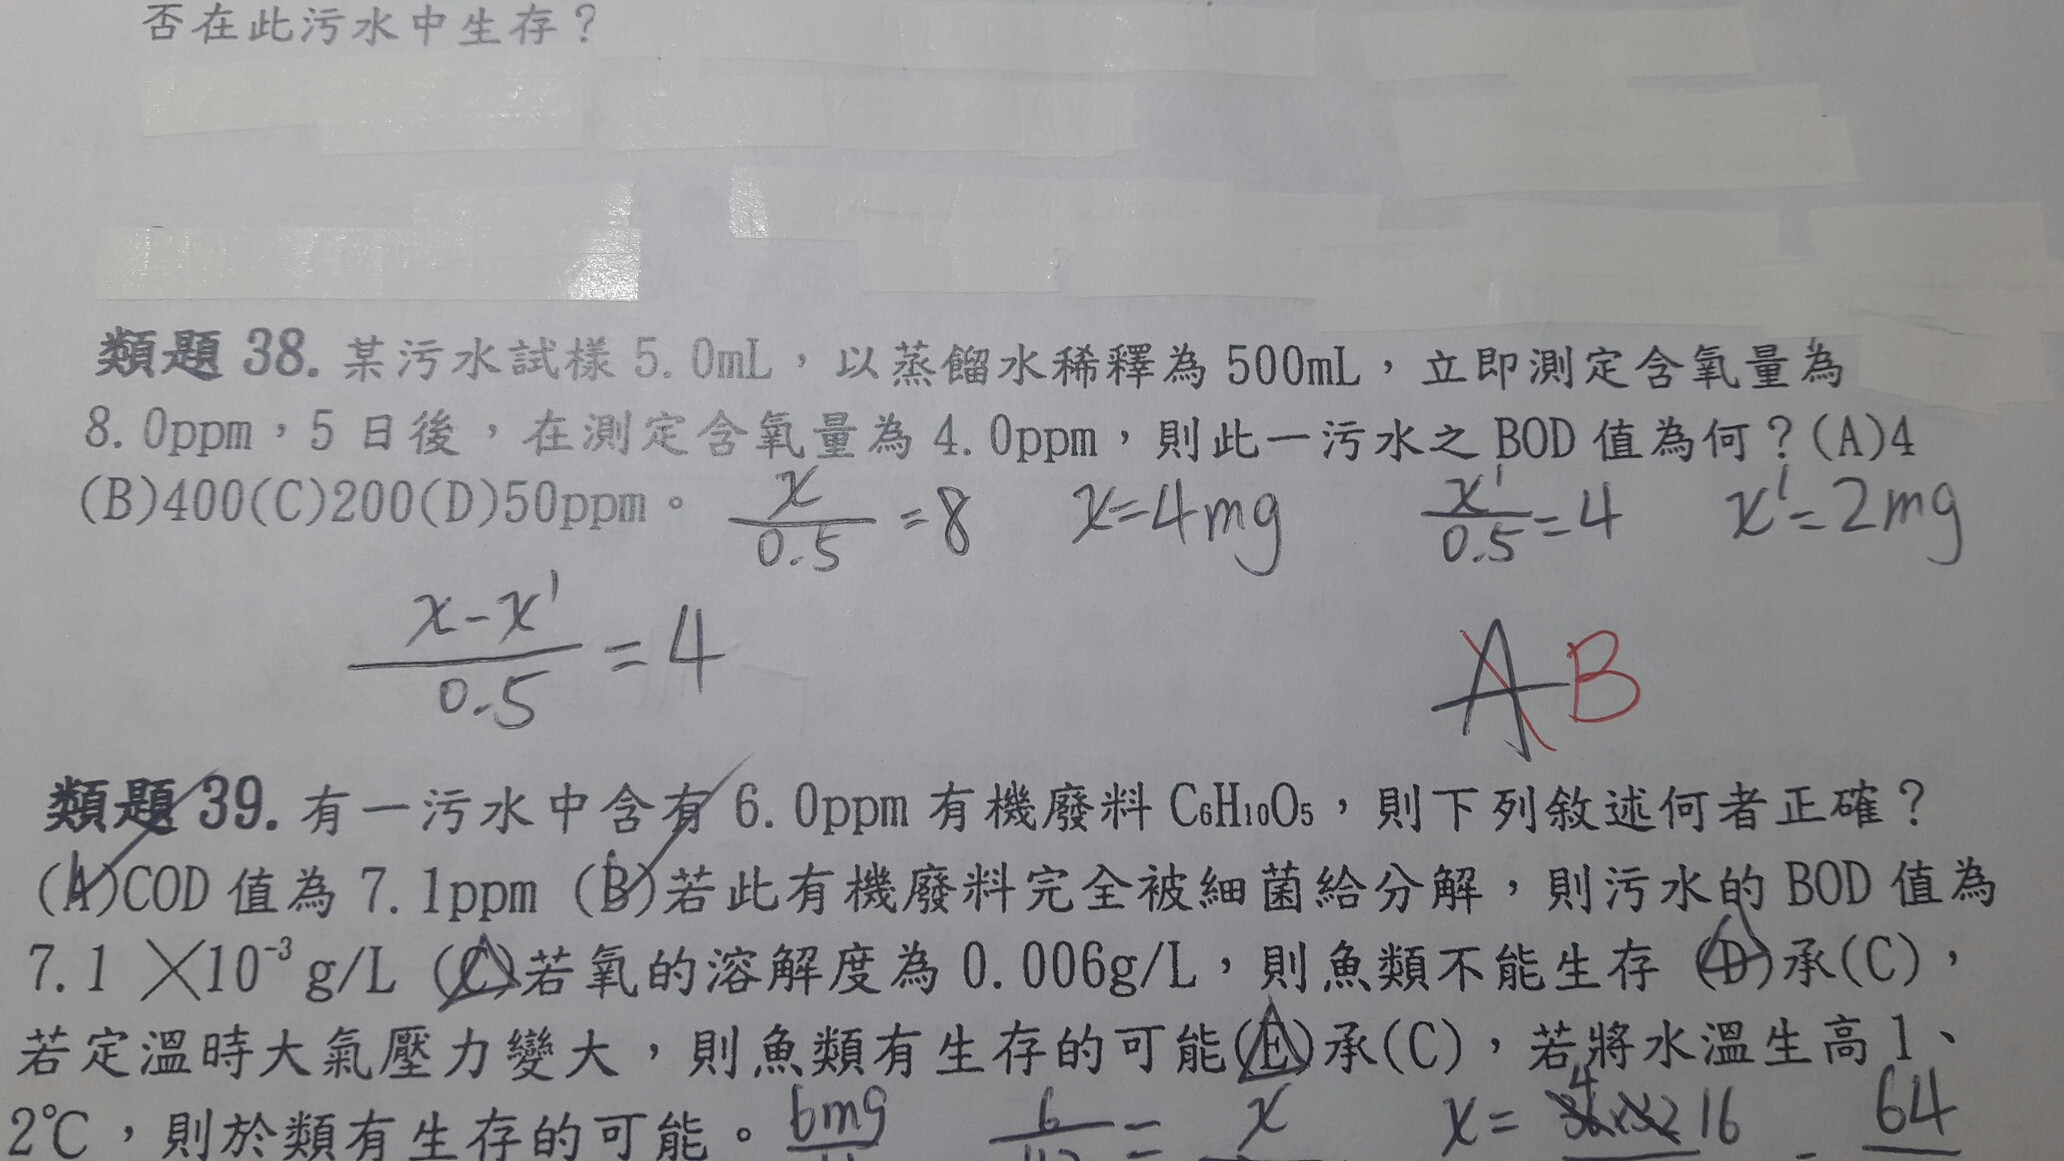 否在此污水中生存？
類題 38. 某污水試樣 5.0mL，以蒸餾水稀釋為 500mL，立即測定含氧量為
8.0ppm，5 日後，在測定含氧量為 4.0ppm，則此一污水之 BOD 值為何？(A)4
(B)400(C)200(D)50ppm。
x/0.5 = 8 x=4mg x'/0.5 = 4 x'=2mg
x-x'/0.5 = 4
A B
類題 39. 有一污水中含有 6.0ppm 有機廢料 C₆H₁₀O₅，則下列敘述何者正確？
(A)COD 值為 7.1ppm (B)若此有機廢料完全被細菌給分解，則污水的 BOD 值為
7.1 ×10⁻³ g/L (C)若氧的溶解度為 0.006g/L，則魚類不能生存 (D)承(C)，
若定溫時大氣壓力變大，則魚類有生存的可能(E)承(C)，若將水溫生高 1、
2℃，則於類有生存的可能。 6mg 6 = x x= 4 16 64